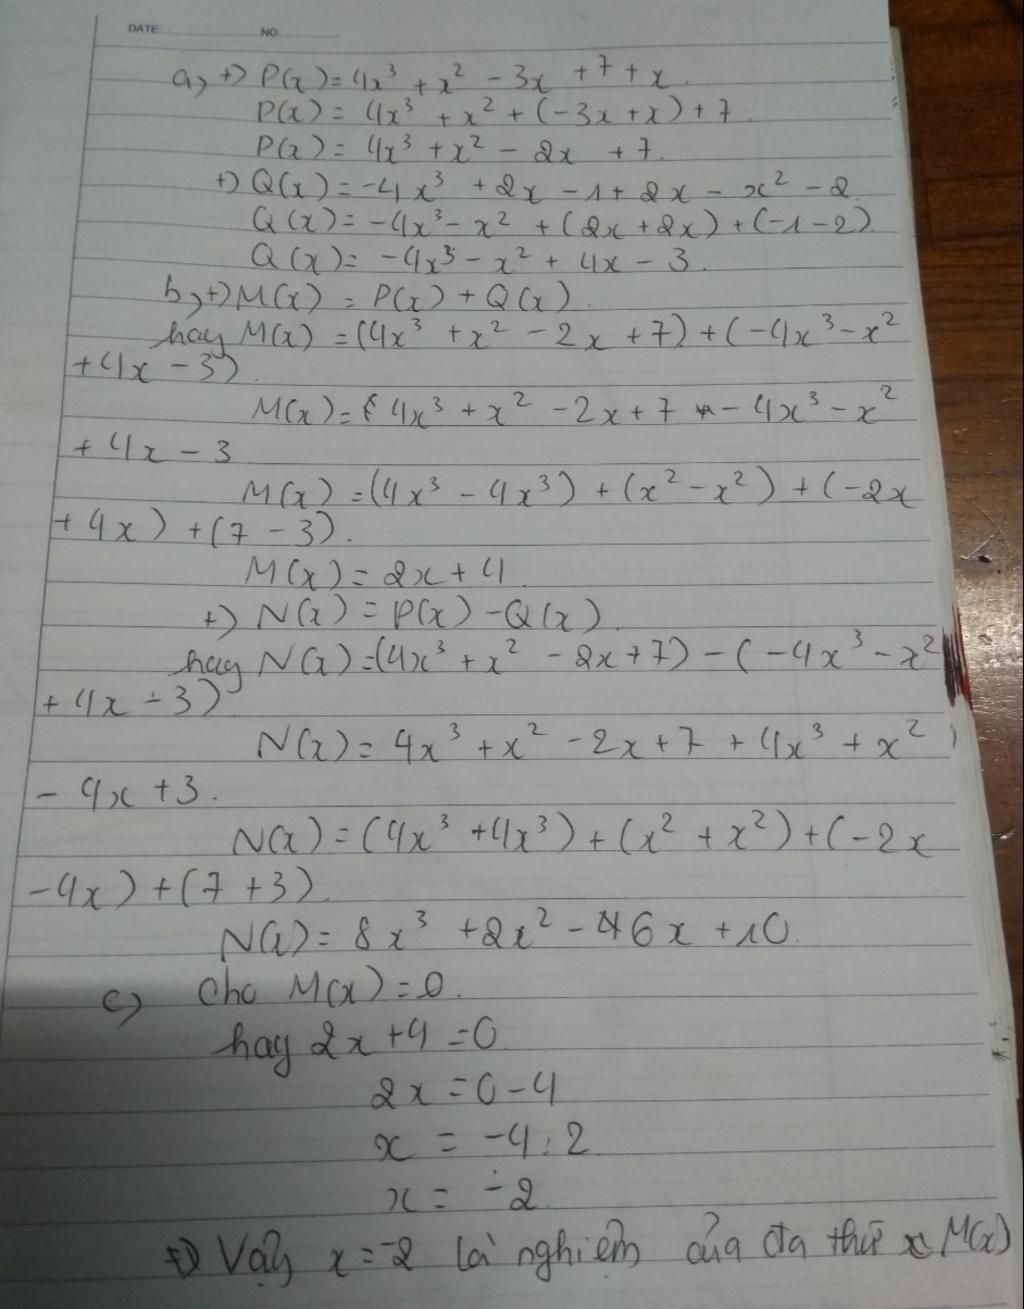 DATE NO
a, +) P(x) = 4x³ + x² - 3x + 7 + x.
P(x) = 4x³ + x² + (-3x + x) + 7.
P(x) = 4x³ + x² - 2x + 7.
+) Q(x) = -4x³ + 2x - 1 + 2x - x² - 2.
Q(x) = -4x³ - x² + (2x + 2x) + (-1 - 2).
Q(x) = -4x³ - x² + 4x - 3.
b, +) M(x) = P(x) + Q(x).
hay M(x) = (4x³ + x² - 2x + 7) + (-4x³ - x²
+ 4x - 3).
M(x) = 4x³ + x² - 2x + 7 - 4x³ - x²
+ 4x - 3
M(x) = (4x³ - 4x³) + (x² - x²) + (-2x
+ 4x) + (7 - 3).
M(x) = 2x + 4.
+) N(x) = P(x) - Q(x).
hay N(x) = (4x³ + x² - 2x + 7) - (-4x³ - x²
+ 4x - 3)
N(x) = 4x³ + x² - 2x + 7 + 4x³ + x²
- 4x + 3.
N(x) = (4x³ + 4x³) + (x² + x²) + (-2x
- 4x) + (7 + 3).
N(x) = 8x³ + 2x² - 6x + 10.
c, Cho M(x) = 0.
hay 2x + 4 = 0
2x = 0 - 4
x = -4 : 2
x = -2.
+) Vậy x = -2 là nghiệm của đa thức M(x)